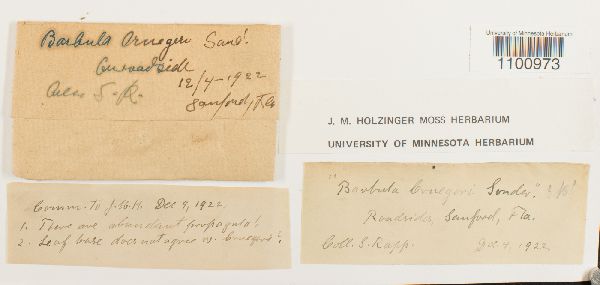 Barbula Cruegeri Sond!.
On roadside
12/4-1922
Coll S. R.
Sanford, Fla
University of Minnesota Herbarium
1100973
J. M. HOLZINGER MOSS HERBARIUM
UNIVERSITY OF MINNESOTA HERBARIUM
Comm. To J.M.H. Dec 9, 1922.
1. There are abundant propagula!
2. Leaf base does not agree w. Cruegeri?
"Barbula Cruegeri Sonder".
Roadsides, Sanford, Fla.
Coll. S. Rapp. Dec 4, 1922